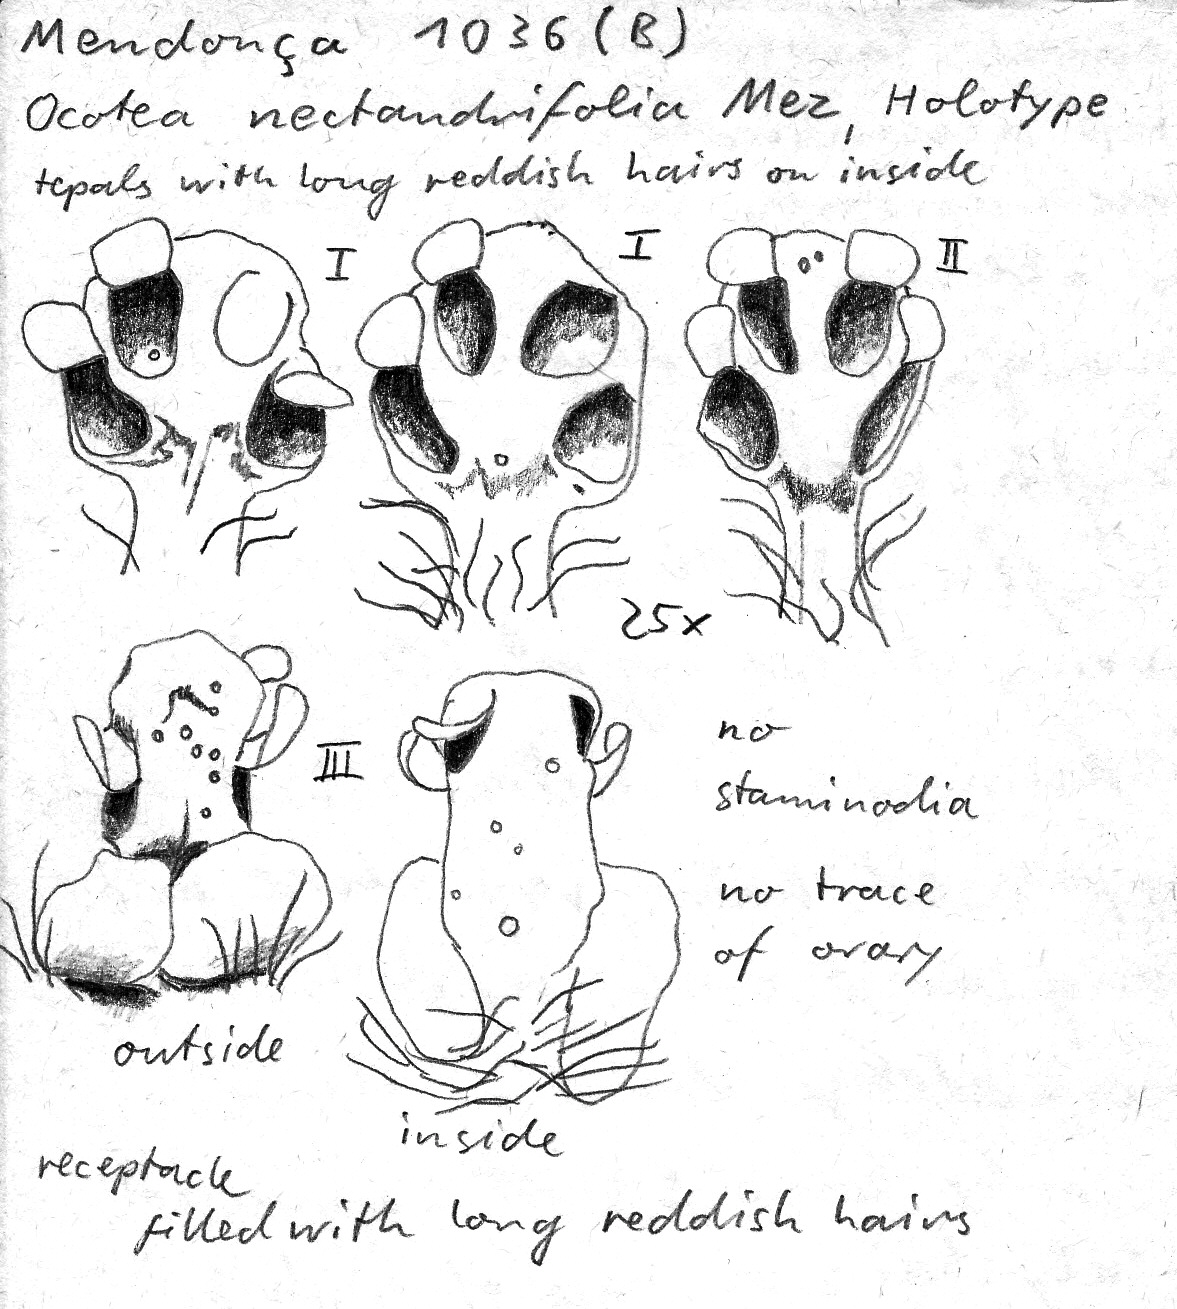 Mendonça 1036 (B)
Ocotea nectandrifolia Mez, Holotype
tepals with long reddish hairs on inside
I
I
II
25x
III
no
staminodia
no trace
of ovary
outside
inside
receptacle
filled with long reddish hairs